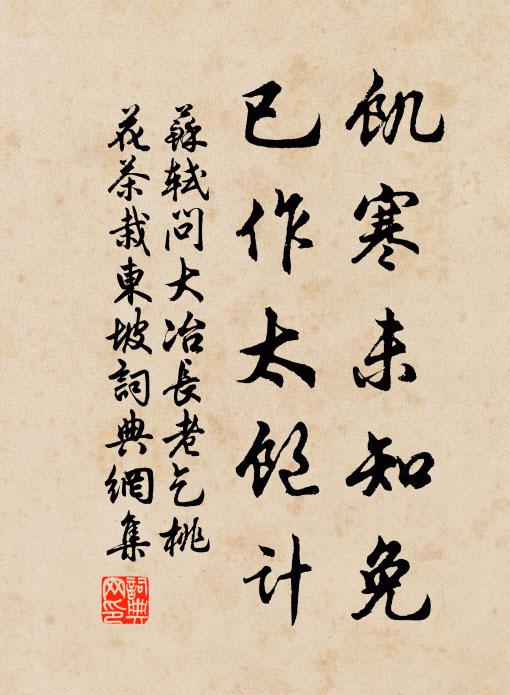 飢寒未知免
已作太飽計
蘇軾問大冶長老乞桃
花茶栽東坡詞典網集
詞典
网印